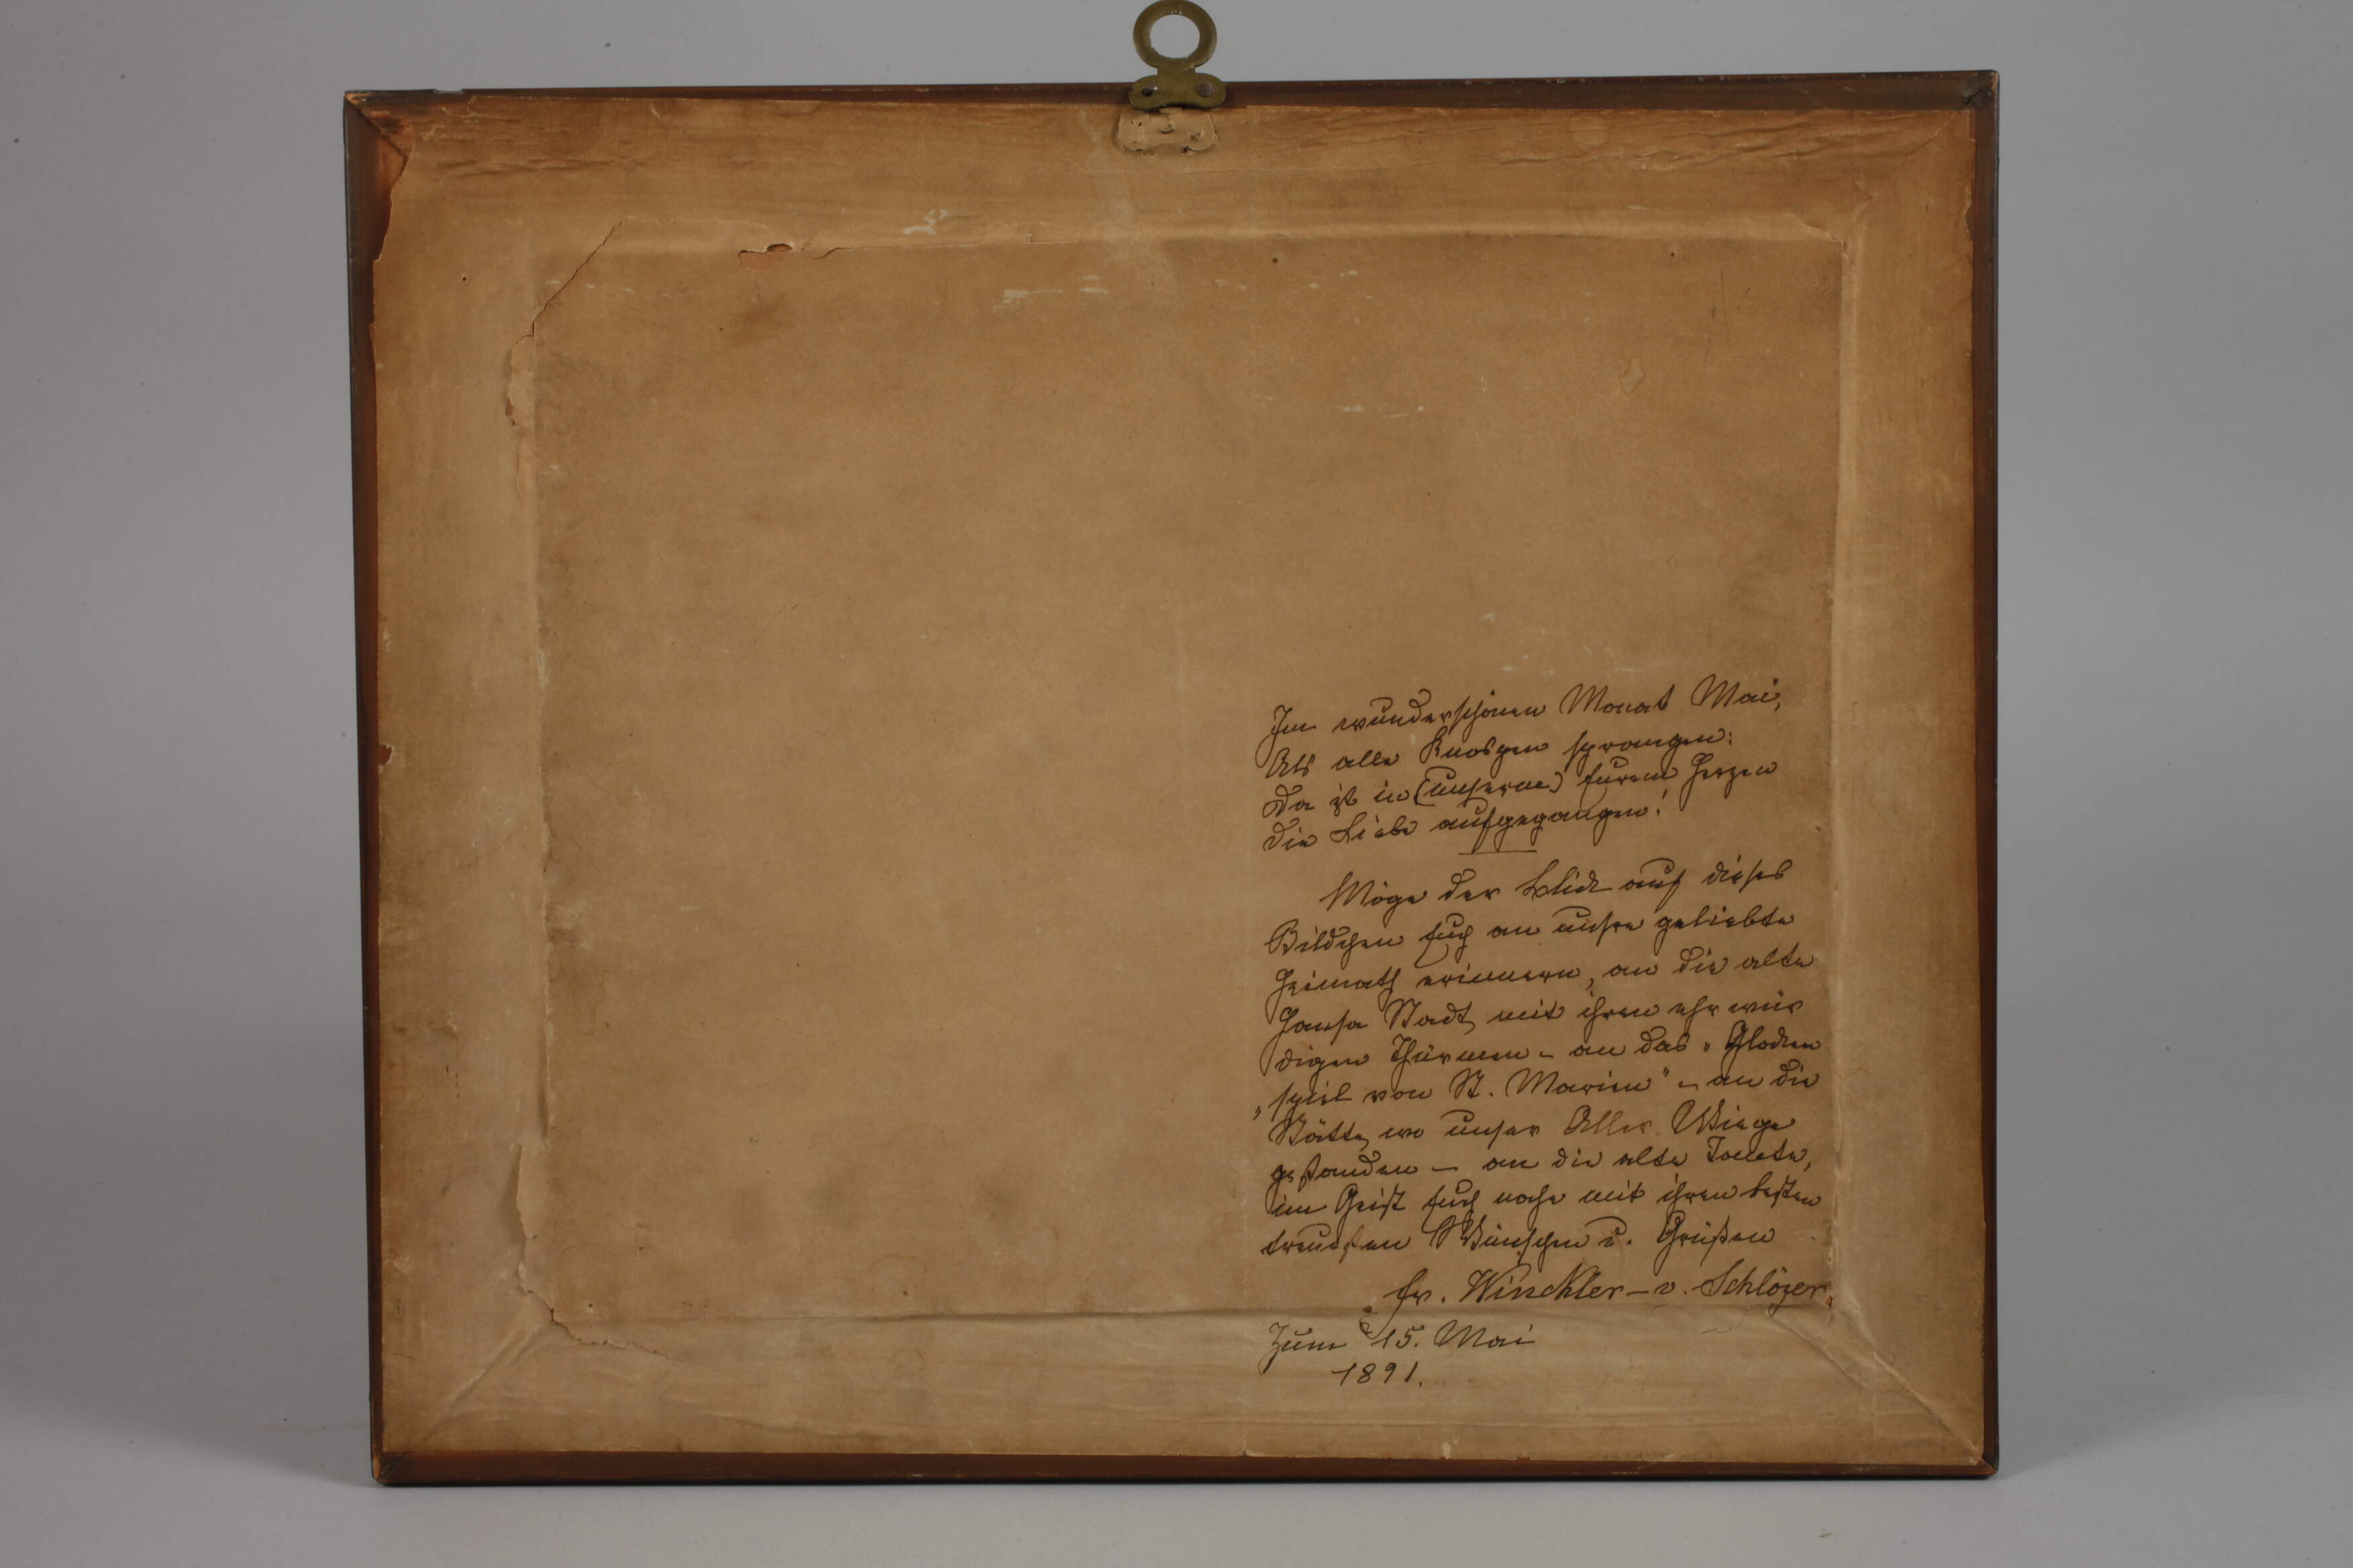 Im wunderschönen Monat Mai,
Als alle Knospen sprangen:
Da ist in (unserm) Eurem Herzen
die Liebe aufgegangen!
Möge der Blick auf dieses
Bildchen Euch an unsre geliebte
Heimath erinnern, an die alte
Hansa Stadt, mit ihren ehrwür
digen Thürmen – an das „Glocken
„spiel von St. Marien" – an die
Stätte, wo unser Aller Wiege
gestanden – an die alte Tante,
im Geist Euch nahe mit ihren besten
treuesten Wünschen u. Grüßen
Fr. Winckler – v. Schlözer.
Zum 15. Mai
1891.